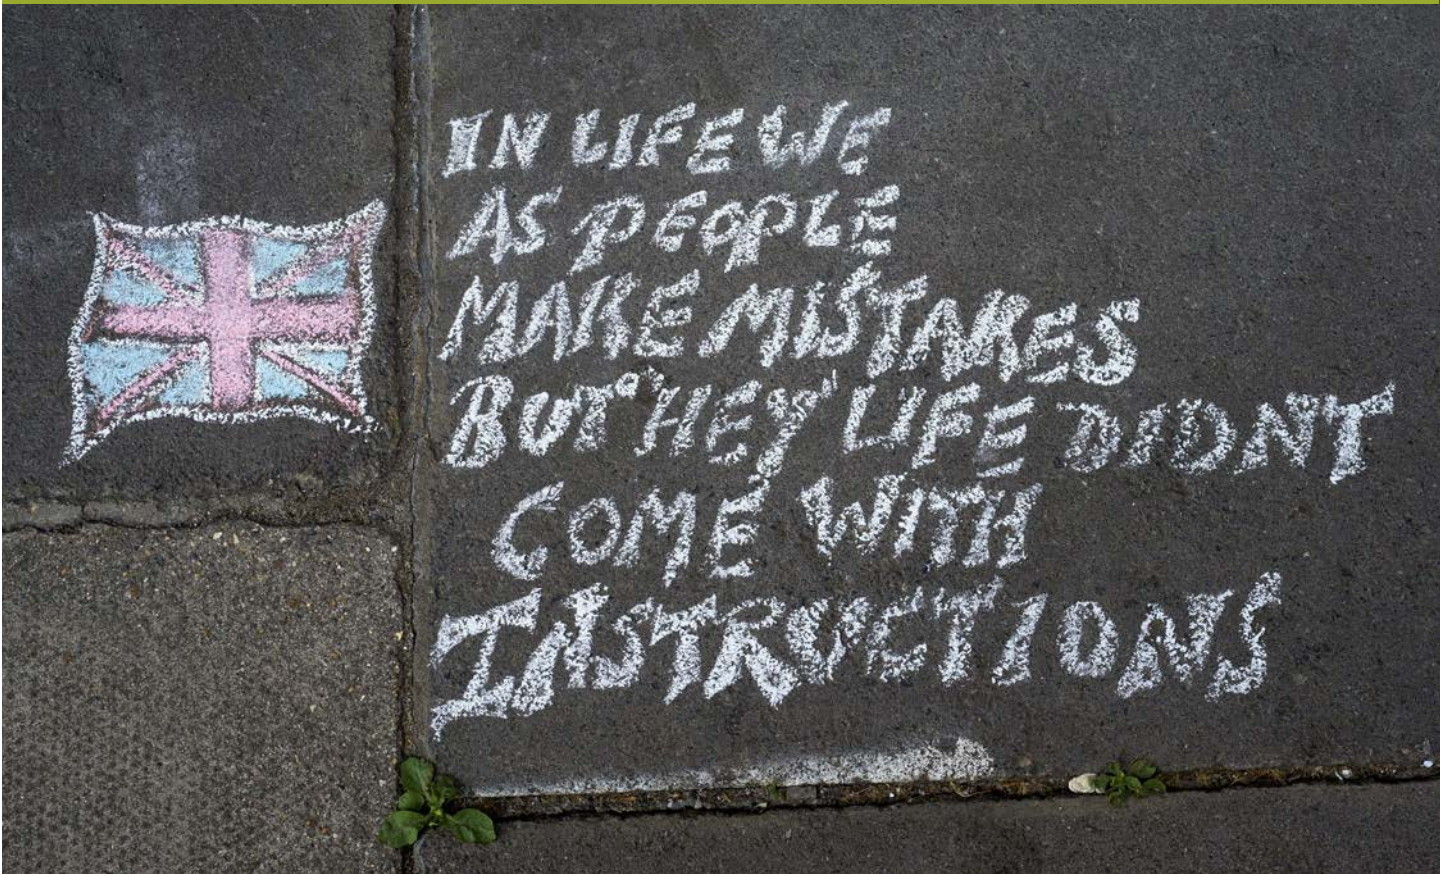 IN LIFE WE
AS PEOPLE
MAKE MISTAKES
BUT "HEY" LIFE DIDNT
COME WITH
INSTRUCTIONS